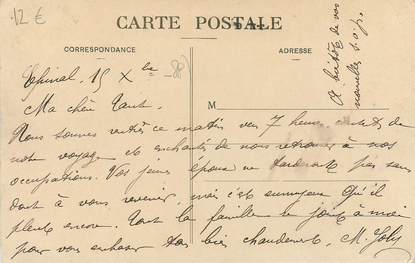 12 €
CARTE POSTALE
CORRESPONDANCE
ADRESSE
Epinal, 15 Xbre
Ma chère Tante.
M
Nous sommes rentrés ce matin vers 7 heures de
notre voyage et enchantés de nous retrouver à nos
occupations. Vos jeunes époux ne tarderont pas sans
doute à vous revenir, mais c'est ennuyeux qu'il
pleut encore. Toute la famille se joint à moi
pour vous embrasser bien chaudement. M. Joly
A bientôt de vos
nouvelles s.v.p.